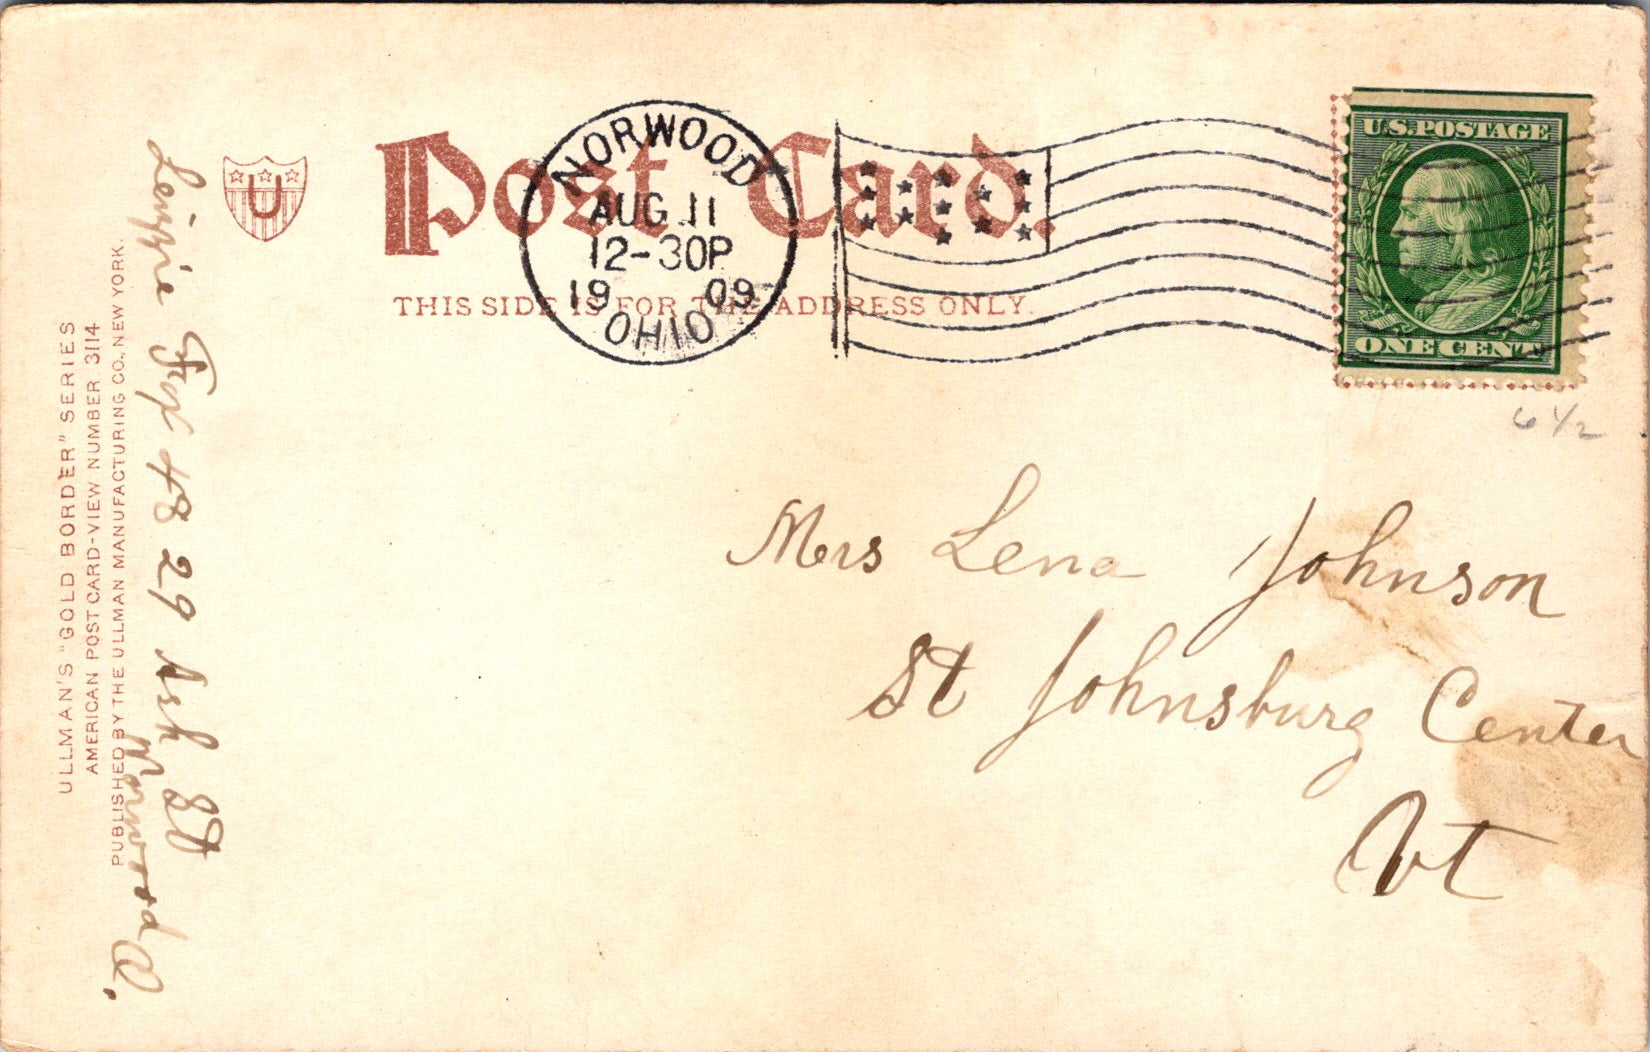 Post Card.
THIS SIDE IS FOR THE ADDRESS ONLY.
NORWOOD
AUG 11
12-30P
1909
OHIO
U.S. POSTAGE
ONE CENT
6 1/2
U
Mrs Lena Johnson
St Johnsburg Center
Vt
Lizzie 48 29 Ash St
Norwood O.
ULLMAN'S "GOLD BORDER" SERIES
AMERICAN POST CARD-VIEW NUMBER 3114
PUBLISHED BY THE ULLMAN MANUFACTURING CO., NEW YORK.